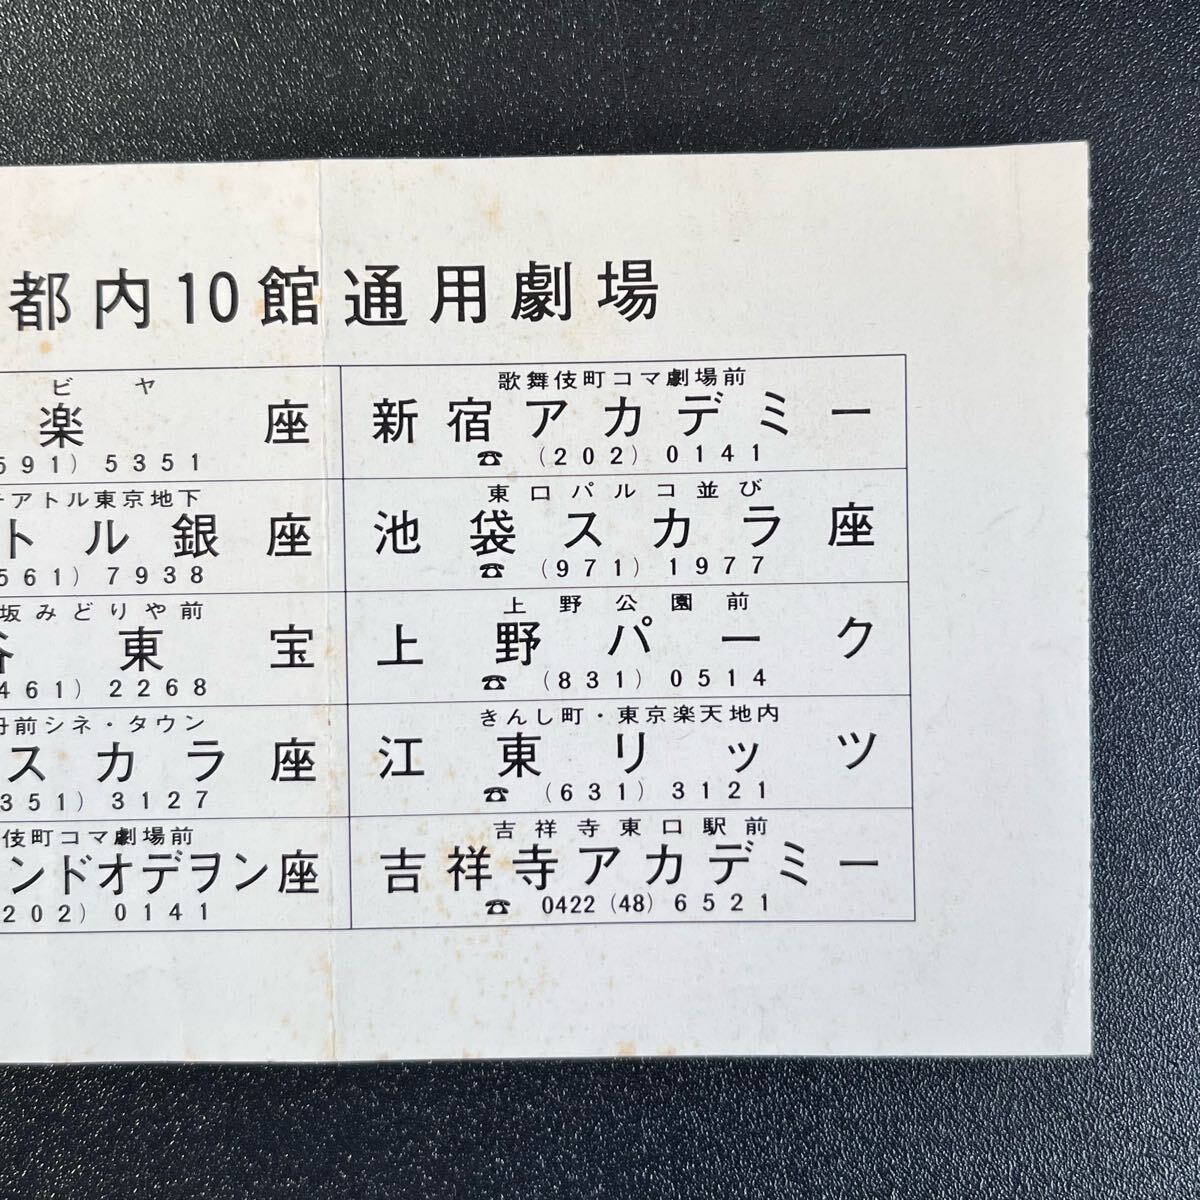 都内10館通用劇場
ビヤ
楽座
591) 5351
アトル東京地下
トル銀座
561) 7938
坂みどりや前
谷東宝
461) 2268
丹前シネ・タウン
スカラ座
351) 3127
伎町コマ劇場前
ンドオデヲン座
202) 0141
歌舞伎町コマ劇場前
新宿アカデミー
☎ (202) 0141
東口パルコ並び
池袋スカラ座
☎ (971) 1977
上野公園前
上野パーク
☎ (831) 0514
きんし町・東京楽天地内
江東リッツ
☎ (631) 3121
吉祥寺東口駅前
吉祥寺アカデミー
☎ 0422 (48) 6521